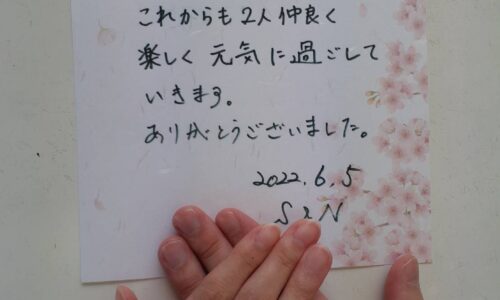 これからも2人仲良く
楽しく元気に過ごして
いきます。
ありがとうございました。
2022.6.5
S&N